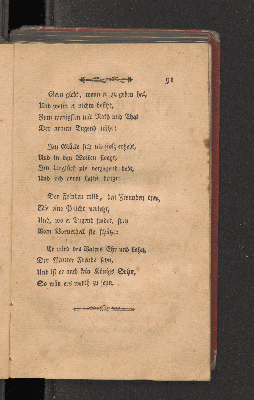 91
Gern giebt, wenn er zu geben hat,
Und wenn er nichts besitzt,
Zum wenigsten mit Rath und That
Der armen Tugend nützt:
Im Glücke sich nie stolz erhebt,
Und in den Wolken
Im Unglück nie verzagend bebt,
Und sich
Der Feinden mild, das Freunden treu,
Nie eine Pflicht verletzt,
Und, wo er Tugend findet, sie
Vom Vorurtheil sie schätzt:
Er wird des Vaters Ehr und Lohn,
Der Mutter Freude seyn,
Und ist er auch kein Königs Sohn,
So wär ers werth zu seyn.